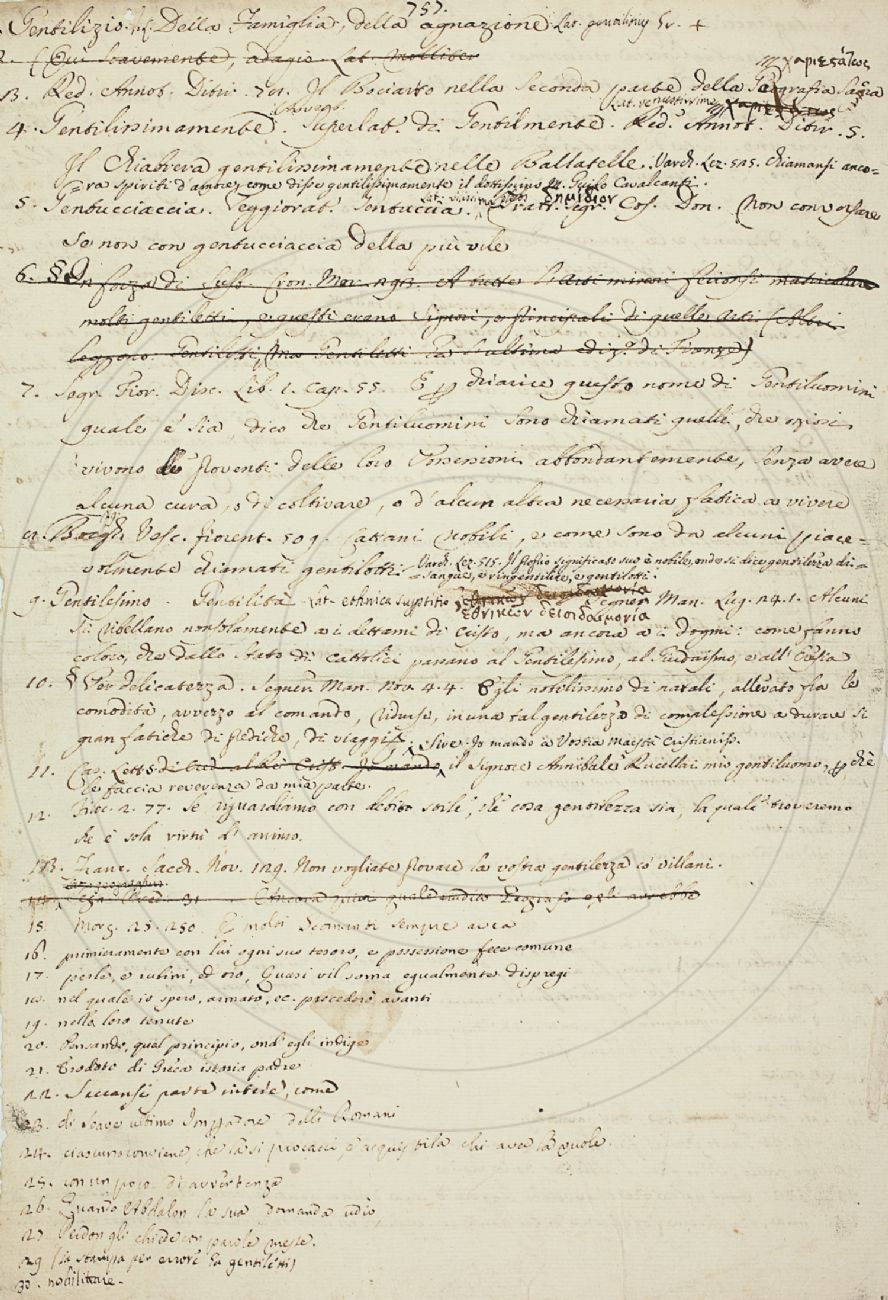 757.
Gentilizio. Della Famiglia, della agnazione. Lat. gentilitius Gr. +
2. (Qui soavemente, adagio. Lat. molliter
χαριεστάτως
13. Red. Annot. Ditir. 701. Il Bociarto nella Seconda parte della Geografia Sacra
Lat. venustissime
4. Gentilissimamente. Superlat. di Gentilmente. Red. Annot. Ditir. 5.
Il Chiabrera gentilissimamente nelle Ballatelle. Varch. Lez. 525. Chiamansi anco-
ra spiriti d'amore, come disse gentilissimamente il dottissimo M. Guido Cavalcanti.
5. Gentucciaccia. Peggiorat. Gentuccia. Tratt. segr. Cos. Don. Non conversare
se non con gentucciaccia della più vile
6. § In forza di Sust. Cron. Mor. 293. A tutte l'Arti minori feciorsi matricolare
molti gentiletti, e questi erano Signori, e principali di quelle Arti. (Altri
leggono Gentilotti, ma Gentiletti ha l'ultima ediz. di Firenze)
7. Segr. Fior. Disc. Lib. 1. Cap. 55. E per chiarire questo nome di Gentiluomini
quale e' sia, dico che Gentiluomini sono chiamati quelli, che oziosi
vivono de' proventi delle loro Possessioni abbondantemente, senza avere
alcuna cura, o di coltivare, o d'alcun altra necessaria fatica a vivere
Borgh. Vesc. fiorent. 509. Cattani Nobili, e come sono da alcuni piace-
volmente chiamati gentilotti. Varch. Lez. 515. Il proprio significato suo è nobile, onde si dice gentilezza di
sangue, e ringentilire, e gentilotti.
9. Gentilesimo Gentilità Lat. ethnica superstitio Segner. Man. Lug. 24. 1. Alcuni
ἐθνικῶν δεισιδαιμονία
Si ribellano non solamente a i dettami di Cristo, ma ancora a i Dogmi: come fanno
coloro, che dallo stato di Cattolici passano al Gentilesimo, al Giudaismo, e all'Eresia
10. § Per delicatezza. Segner. Man. Nov. 4. 4. Egli nobilissimo di natali, allevato fra le
comodità, avvezzo al comando, ridursi, in una tal gentilezza di complessione a durare sì
gran fatiche di prediche, di viaggi
Sire. Io mando a Vostra Maestà Cristianiss.
11. Car. Lett. il Signore Annibale Rucellai mio gentiluomo, perchè
le faccia reverenza da mia parte.
12. Filoc. 2. 77. Se riguardiamo con debito stile, che cosa gentilezza sia, la quale troveremo
che è sola virtù d'animo.
13. Franc. Sacch. Nov. 129. Non vogliate provare la vostra gentilezza co' villani.
15. Morg. 25. 250. E molti Negromanti sempre avea
16. primieramente con lui ogni suo tesoro, e possessione fece comune
17. perle, e rubini, ed oro, Quasi vil soma egualmente dispregi
18. nel quale io spero, armato, ec. procederò avanti
19. nelle loro tenute
20. Pensando, qual principio, ond'egli indige
21. Erodoto di Greca istoria padre
22. Seccansi parte intere, come
23. di Soave ultimo Imperadore delli Romani
24. ciascuno conviene, che la si procacci, e acquistila chi aver la vuole.
25. con un poco di avvertenza
26. Quando Absalon la sua domanda udio,
27. Perdon gli chiede con parole preste.
29 (la stampa per errore ha gentiletti)
30. nobilitare.